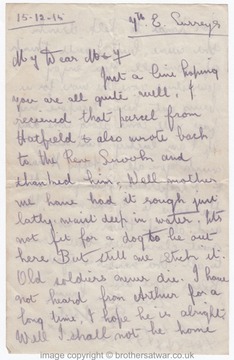 15-12-15 7th E. Surreys
My Dear M & F
Just a line hoping
you are all quite well, I
received that parcel from
Hatfield & also wrote back
to the Rev and
thanked him, Well mother
we have had it rough just
lately, waist deep in water. Its
not fit for a dog to be out
here. But still we stick it.
Old soldiers never die. I have
not heard from Arthur for a
long time, I hope he is alright.
Well I shall not be home
image copyright © brothersatwar.co.uk